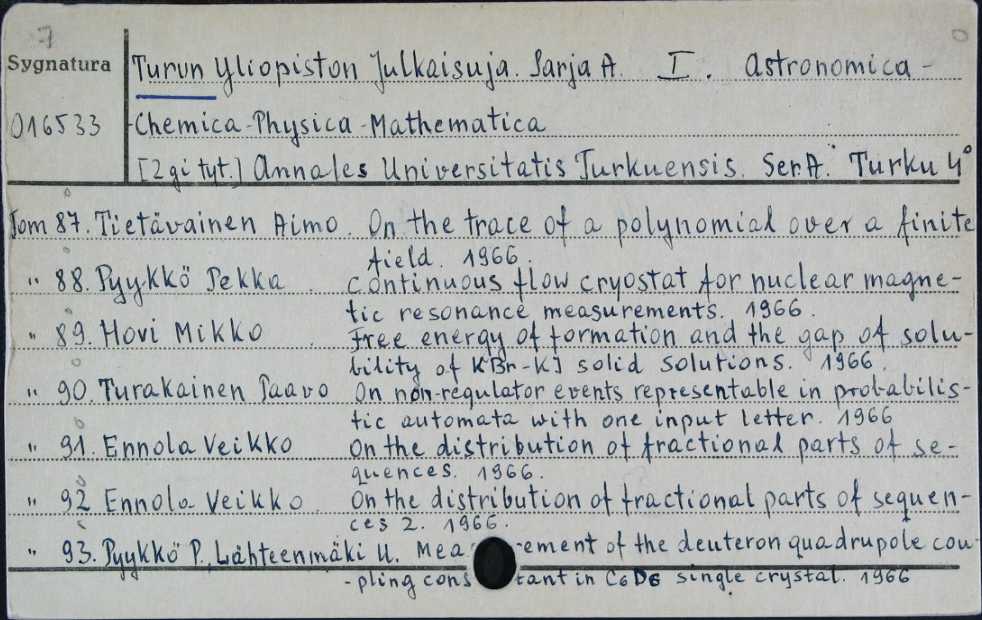 7
Sygnatura Turun Yliopiston Julkaisuja. Sarja A. I. Astronomica -
016533 Chemica-Physica-Mathematica
[2gi tyt.] Annales Universitatis Turkuensis. Ser A. Turku 4°
Tom 87. Tietäväinen Aimo. On the trace of a polynomial over a finite
field. 1966.
" 88. Pyykkö Pekka. Continuous flow cryostat for nuclear magne-
tic resonance measurements. 1966.
" 89. Hovi Mikko. Free energy of formation and the gap of solu-
bility of KBr-KJ solid solutions. 1966.
" 90. Turakainen Paavo On non-regulator events representable in probabilis-
tic automata with one input letter. 1966
" 91. Ennola Veikko On the distribution of fractional parts of se-
quences. 1966.
" 92 Ennola Veikko. On the distribution of fractional parts of sequen-
ces 2. 1966.
" 93. Pyykkö P., Lähteenmäki U. Mea ement of the deuteron quadrupole cou
-pling cons tant in C6D6 single crystal. 1966